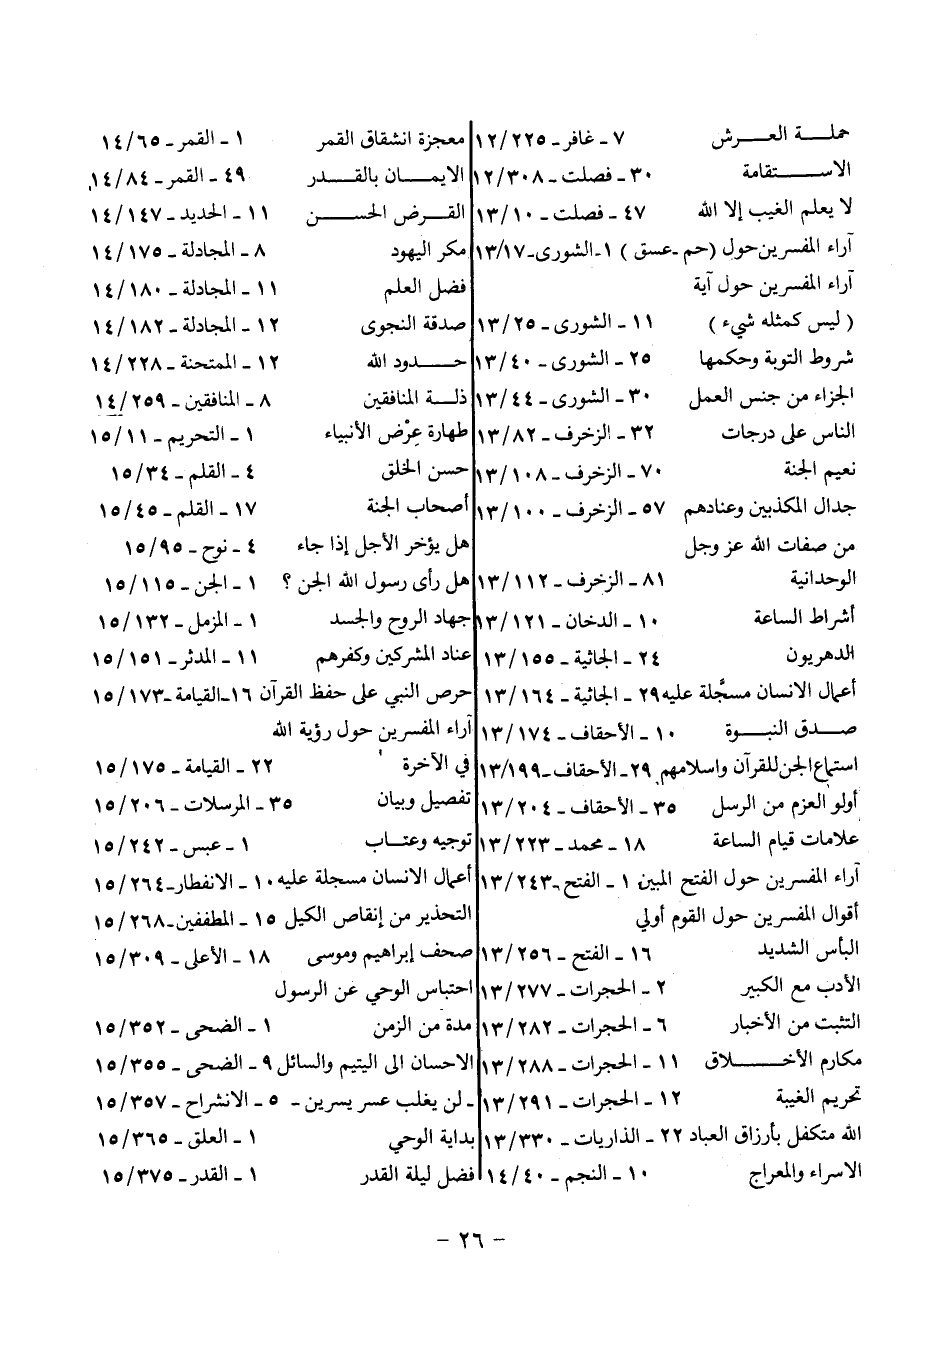 حملة العرش ٧ ـ غافر ـ ١٢/٢٢٥
الاستقامة ٣٠ ـ فصلت ـ ١٢/٣٠٨
لا يعلم الغيب إلا الله ٤٧ ـ فصلت ـ ١٣/١٠
آراء المفسرين حول (حم ـ عسق) ١ ـ الشورى ـ ١٣/١٧
آراء المفسرين حول آية
(ليس كمثله شيء) ١١ ـ الشورى ـ ١٣/٢٥
شروط التوبة وحكمها ٢٥ ـ الشورى ـ ١٣/٤٠
الجزاء من جنس العمل ٣٠ ـ الشورى ـ ١٣/٤٤
الناس على درجات ٣٢ ـ الزخرف ـ ١٣/٨٢
نعيم الجنة ٧٠ ـ الزخرف ـ ١٣/١٠٨
جدال المكذبين وعنادهم ٥٧ ـ الزخرف ـ ١٣/١٠٠
من صفات الله عز وجل
الوحدانية ٨١ ـ الزخرف ـ ١٣/١١٢
أشراط الساعة ١٠ ـ الدخان ـ ١٣/١٢١
الدهريون ٢٤ ـ الجاثية ـ ١٣/١٥٥
أعمال الانسان مسجَّلة عليه ٢٩ ـ الجاثية ـ ١٣/١٦٤
صدق النبوة ١٠ ـ الأحقاف ـ ١٣/١٧٤
استماع الجن للقرآن واسلامهم ٢٩ ـ الأحقاف ـ ١٣/١٩٩
أولو العزم من الرسل ٣٥ ـ الأحقاف ـ ١٣/٢٠٤
علامات قيام الساعة ١٨ ـ محمد ـ ١٣/٢٢٣
آراء المفسرين حول الفتح المبين ١ ـ الفتح ـ ١٣/٢٤٣
أقوال المفسرين حول القوم أولي
البأس الشديد ١٦ ـ الفتح ـ ١٣/٢٥٦
الأدب مع الكبير ٢ ـ الحجرات ـ ١٣/٢٧٧
التثبت من الأخبار ٦ ـ الحجرات ـ ١٣/٢٨٢
مكارم الأخلاق ١١ ـ الحجرات ـ ١٣/٢٨٨
تحريم الغيبة ١٢ ـ الحجرات ـ ١٣/٢٩١
الله متكفل بأرزاق العباد ٢٢ ـ الذاريات ـ ١٣/٣٣٠
الاسراء والمعراج ١٠ ـ النجم ـ ١٤/٤٠
معجزة انشقاق القمر ١ ـ القمر ـ ١٤/٦٥
الايمان بالقدر ٤٩ ـ القمر ـ ١٤/٨٤
القرض الحسن ١١ ـ الحديد ـ ١٤/١٤٧
مكر اليهود ٨ ـ المجادلة ـ ١٤/١٧٥
فضل العلم ١١ ـ المجادلة ـ ١٤/١٨٠
صدقة النجوى ١٢ ـ المجادلة ـ ١٤/١٨٢
حدود الله ١٢ ـ الممتحنة ـ ١٤/٢٢٨
ذلة المنافقين ٨ ـ المنافقين ـ ١٤/٢٥٩
طهارة عِرْض الأنبياء ١ ـ التحريم ـ ١٥/١١
حسن الخلق ٤ ـ القلم ـ ١٥/٣٤
أصحاب الجنة ١٧ ـ القلم ـ ١٥/٤٥
هل يؤخر الأجل إذا جاء ٤ ـ نوح ـ ١٥/٩٥
هل رأى رسول الله الجن ؟ ١ ـ الجن ـ ١٥/١١٥
جهاد الروح والجسد ١ ـ المزمل ـ ١٥/١٣٢
عناد المشركين وكفرهم ١١ ـ المدثر ـ ١٥/١٥١
حرص النبي على حفظ القرآن ١٦ ـ القيامة ـ ١٥/١٧٣
آراء المفسرين حول رؤية الله
في الآخرة ٢٢ ـ القيامة ـ ١٥/١٧٥
تفصيل وبيان ٣٥ ـ المرسلات ـ ١٥/٢٠٦
توجيه وعتاب ١ ـ عبس ـ ١٥/٢٤٢
أعمال الانسان مسجلة عليه ١٠ ـ الانفطار ـ ١٥/٢٦٤
التحذير من إنقاص الكيل ١٥ ـ المطففين ـ ١٥/٢٦٨
صحف إبراهيم وموسى ١٨ ـ الأعلى ـ ١٥/٣٠٩
احتباس الوحي عن الرسول
مدة من الزمن ١ ـ الضحى ـ ١٥/٣٥٢
الاحسان الى اليتيم والسائل ٩ ـ الضحى ـ ١٥/٣٥٥
ـ لن يغلب عسر يسرين ـ ٥ ـ الانشراح ـ ١٥/٣٥٧
بداية الوحي ١ ـ العلق ـ ١٥/٣٦٥
فضل ليلة القدر ١ ـ القدر ـ ١٥/٣٧٥
ـ ٢٦ ـ